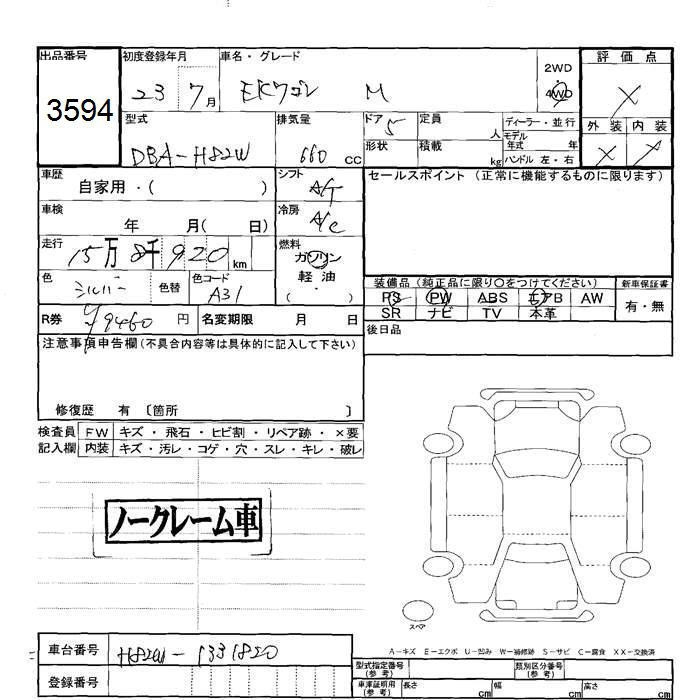 出品番号 初度登録年月 車名・グレード 2WD 評価点
3594 23 7月 EKワゴン M 4WD X
型式 排気量 ドア 5 定員 人 ディーラー・並行 外装 内装
DBA-H82W 660cc 形状 積載 kg モデル年式 年 X X
ハンドル 左・右
車歴 自家用・( ) シフト A/T セールスポイント(正常に機能するものに限ります)
車検 年 月( 日) 冷房 A/C
走行 15万8千920km 燃料 ガソリン
軽・油
( ・ )
色 シルバー 色替 色コード A31 装備品(純正品に限り○をつけてください) 新車保証書
PS PW ABS エアB AW 有・無
R券 ¥9460円 名変期限 月 日 SR ナビ TV 本革
注意事項申告欄(不具合内容等は具体的に記入して下さい) 後日品
修復歴 有 〔箇所 〕
検査員 FW キズ・飛石・ヒビ割・リペア跡・×要
記入欄 内装 キズ・汚レ・コゲ・穴・スレ・キレ・破レ
ノークレーム車
スペア
A-キズ E-エクボ U-凹み W-補修跡 S-サビ C-腐食 XX-交換済
車台番号 H82W-1331820
型式指定番号(参考) 類別区分番号(参考)
登録番号 車庫証明用(参考) 長さ cm 幅 cm 高さ cm